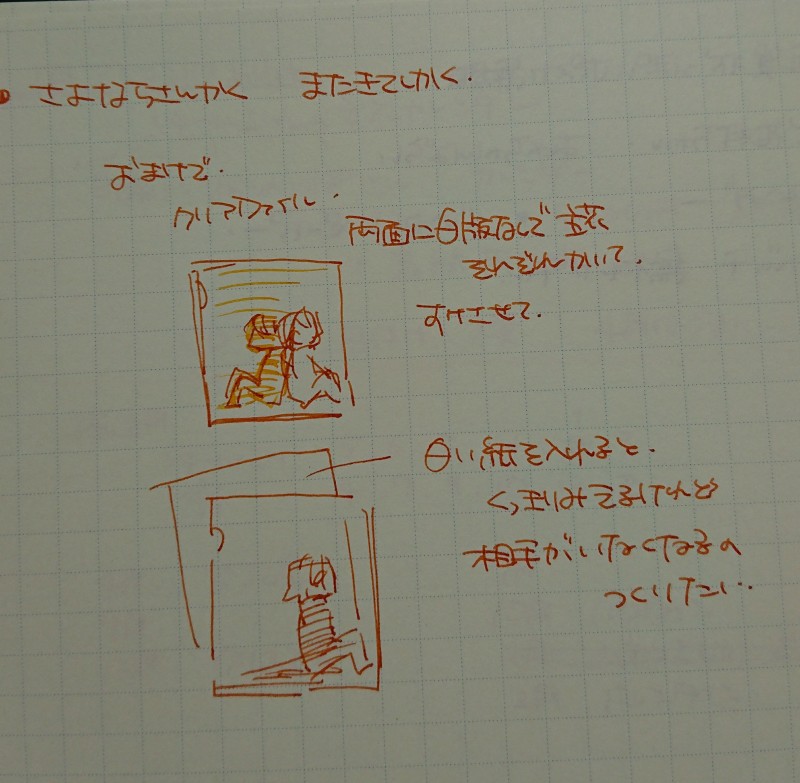 さよなら さんかく　またきて しかく.
おまけで.
クリアファイル.
両面に白版なしで 主芯
それぞれかいて.
すけさせて.
白い紙を入れると.
くっきりみえるけれど
相手がいなくなるの
つくりたい..